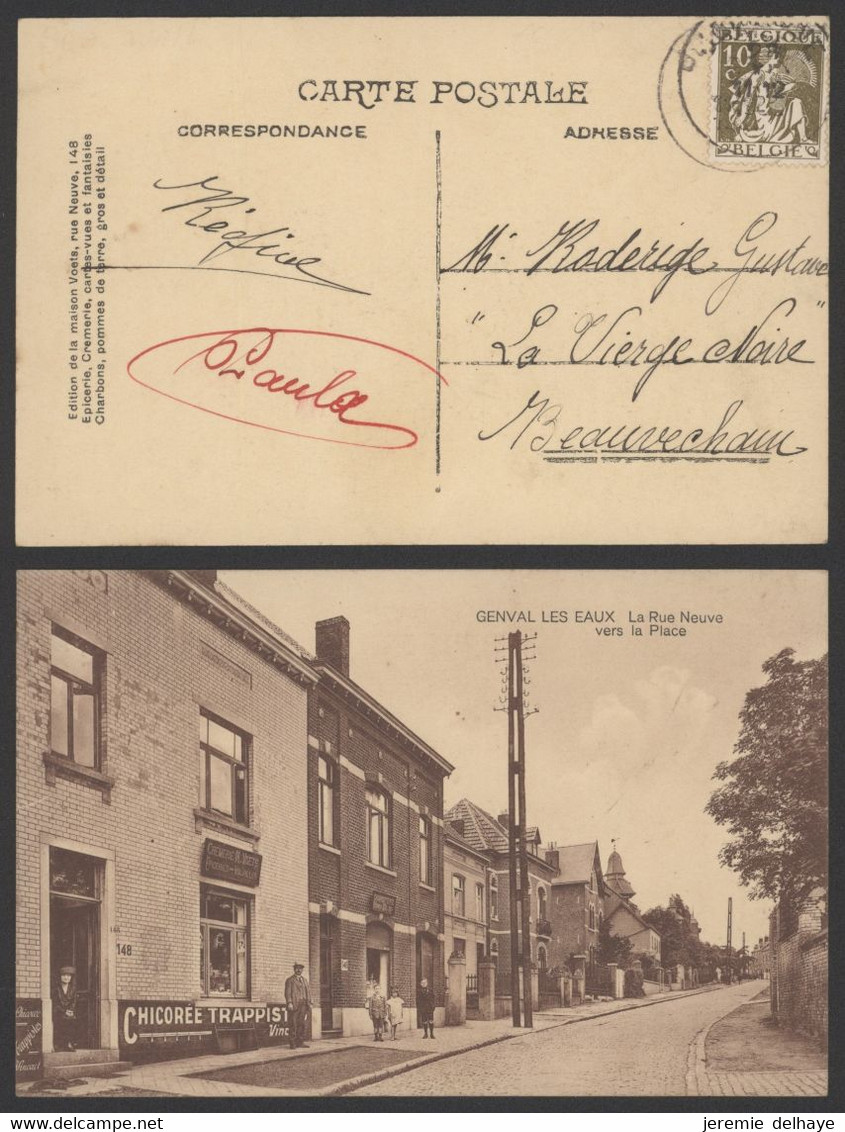 BELGIQUE
10
C
BELGIË
CARTE POSTALE
CORRESPONDANCE
ADRESSE
Edition de la maison Voets, rue Neuve, 148
Epicerie, Cremerie, cartes-vues et fantaisies
Charbons, pommes de terre, gros et détail
Régine
Paula
Mr. Roderige Gustave
"La Vierge Noire"
Beauvechain
GENVAL LES EAUX La Rue Neuve
vers la Place
148
CHICORÉE TRAPPIST
Vinc
www.delcampe.net
jeremie delhaye